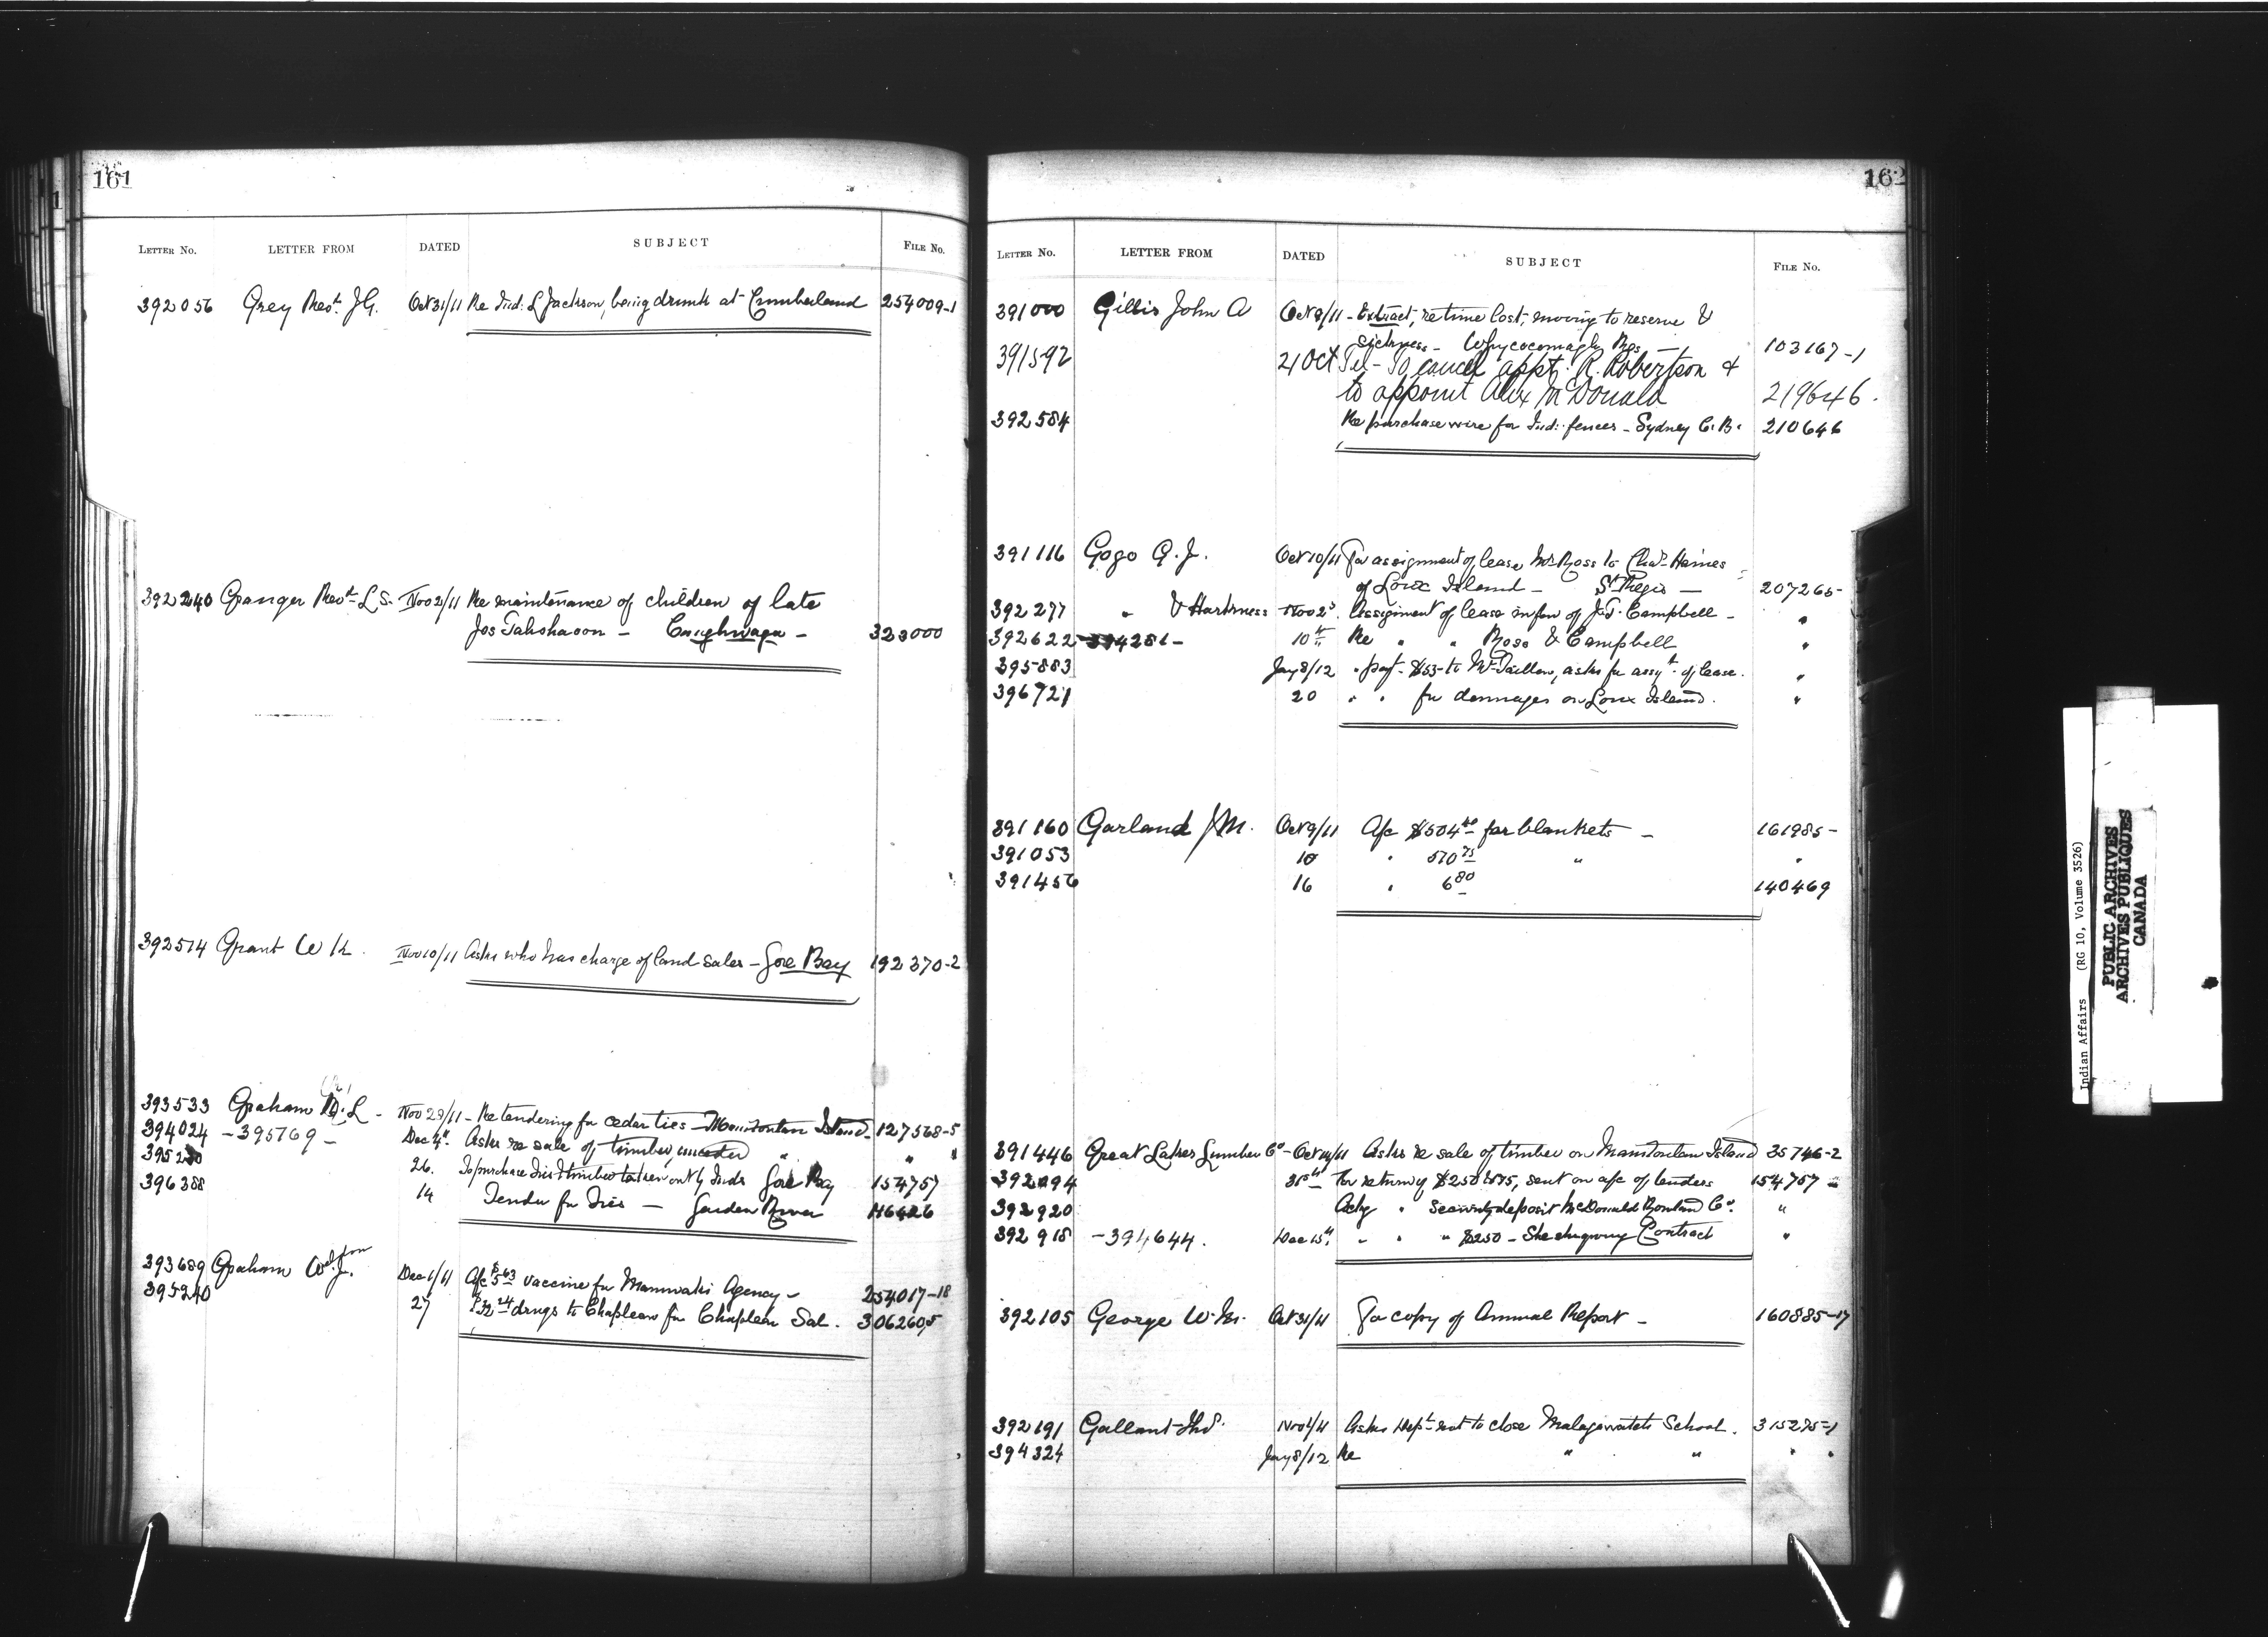 161
LETTER No. LETTER FROM DATED SUBJECT FILE No.
392056 Grey Revd. J.G. Oct 31/11 Re Ind: L Jackson, being drunk at Cumberland 254009-1
392240 Granger Revd. L S. Nov 2/11 Re maintenance of children of late
Jos Tahshaoon - Caughnaga - 323000
392514 Grant W K. Nov 10/11 Asks who has charge of land sales - Gore Bay 192370-2
393533 Graham D. L - Nov 29/11 - Re tendering for cedar ties - Manitoulin Island 127568-5
394024 - 395769 - Dec 4". Asks re sale of timber " "
26. To purchase ties & timber taken out by Inds Gore Bay 154757
396388 14 Tender for Ties - Garden River
393689 Graham W. J. Dec 1/11 A/c $5 63 vaccine for Maniwaki Agency - 254017-18
395240 27 drugs to Chapleau for Chapleau Sal.
162
LETTER No. LETTER FROM DATED SUBJECT FILE No.
391000 Gillis John A Oct 9/11 - Extract, re time lost, moving to reserve &
sickness - Whycocomagh Res - 103167-1
391592 21 Oct Tel - To cancel appt. R. Robertson &
to appoint Alex McDonald 219646.
392584 Re purchase wire for Ind: fences - Sydney C.B. 210646
391116 Gogo G. J. Oct 10/11 For assignment of lease Mrs Ross to Chas. Haines
of Loux Island - St Regis - 207265-
392277 " & Harkness Nov 2d. Assigment of lease in fav of J.T. Campbell - "
392622 - 394281 - 10" Re " " Ross & Campbell "
395883 Jany 8/12 " payt - $53 - to Mr Taillon, asks for assgt. of lease. "
396721 20 " " for damages on Loux Island. "
391160 Garland J M. Oct 9/11 A/c $504 40 for blankets - 161985-
391053 10 " 570 75 " "
391456 16 " 6 80 140469
391446 Great Lakes Lumber Co - Oct 14/11 Asks re sale of timber on Manitoulin Island 35746-2
30" For return of $250 sent on a/c of tenders 154757
392920 Ackg " Security deposit McDonald Co. "
392918 - 394644. Dec 15". " " " $250 - Sheshegwaning Contract "
392105 George W. M. Oct 31/11 For copy of Annual Report - 160885-17
392191 Gallant Thos. Nov 1/11 Asks Dept. not to close Malagawatch School. 315275-1
394324 Jany 8/12 Re " " " "
Indian Affairs (RG 10, Volume 3526)
PUBLIC ARCHIVES
ARCHIVES PUBLIQUES
CANADA